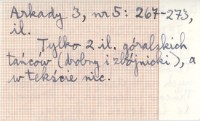 Arkady 3, nr 5: 267-273,
il.
Tylko 2 il. góralskich
tańców (drobny i zbójnicki), a
w tekście nic.